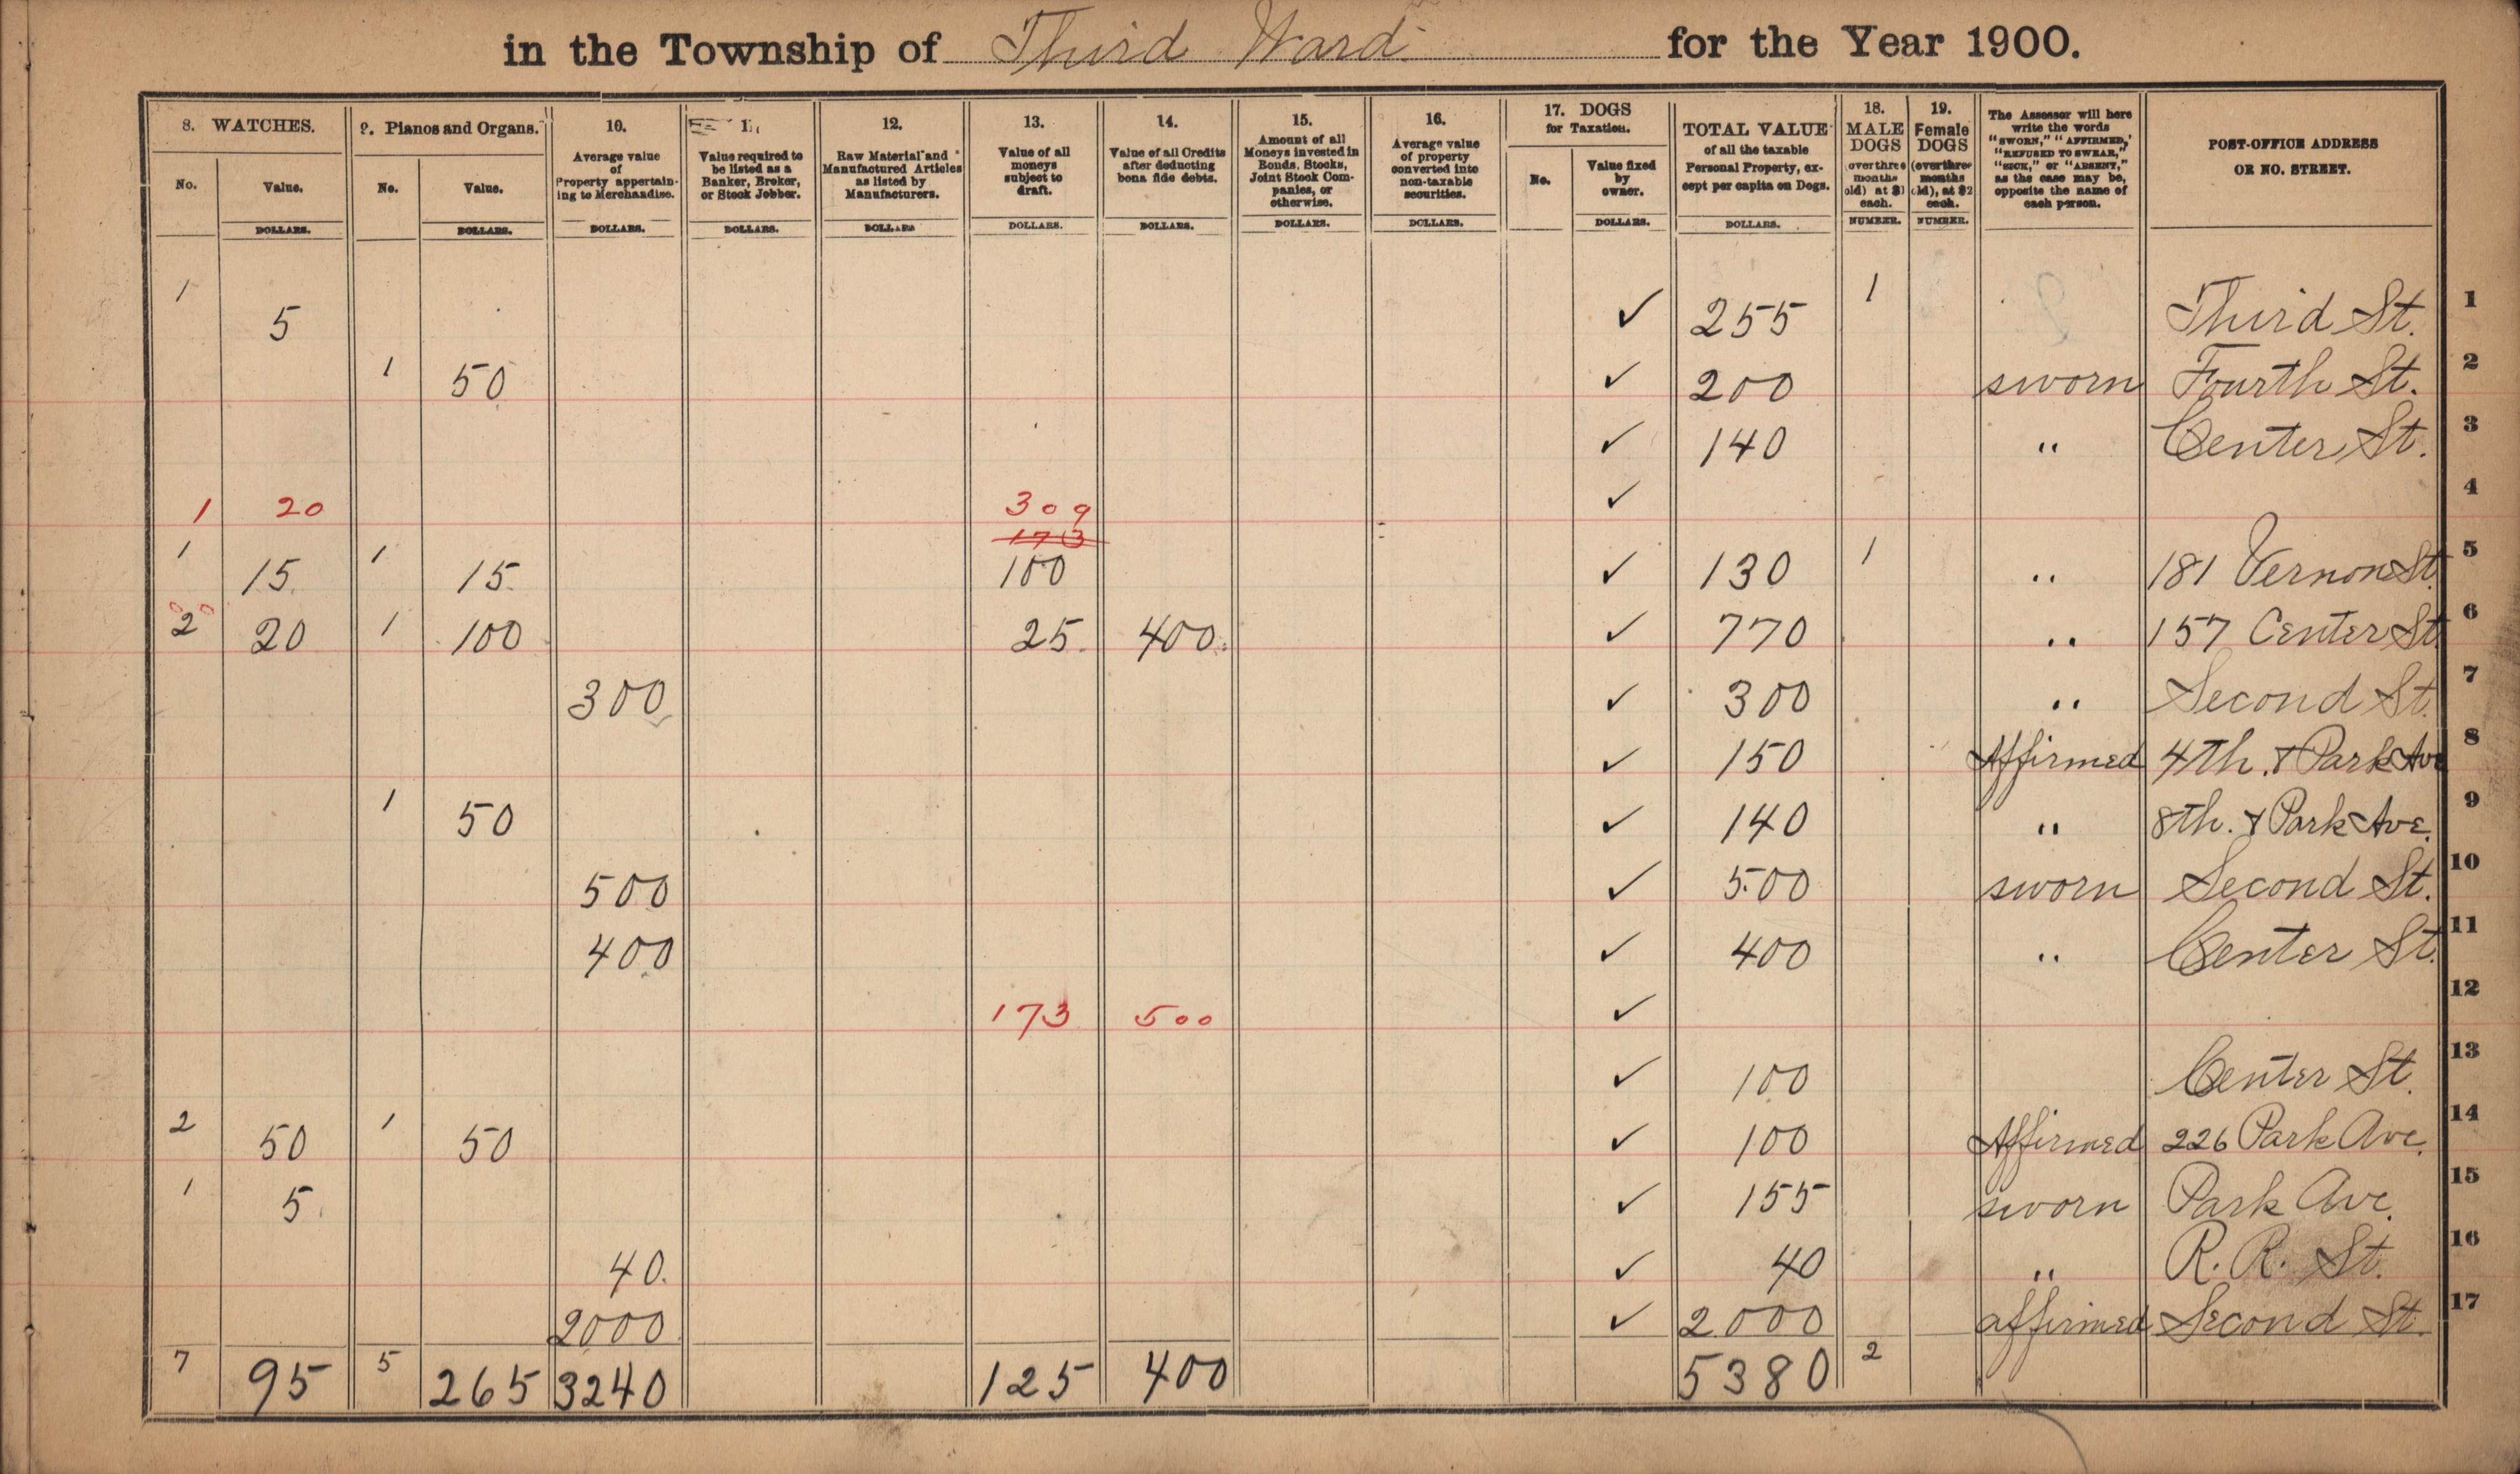 in the Township of Third Ward for the Year 1900.
8. WATCHES. 9. Pianos and Organs. 10. 11. 12. 13. 14. 15. 16. 17. DOGS for Taxation. TOTAL VALUE 18. MALE DOGS 19. Female DOGS
No. Value. DOLLARS.
No. Value. DOLLARS.
Average value of Property appertaining to Merchandise. DOLLARS.
Value required to be listed as a Banker, Broker, or Stock Jobber. DOLLARS.
Raw Material and Manufactured Articles as listed by Manufacturers. DOLLARS
Value of all moneys subject to draft. DOLLARS.
Value of all Credits after deducting bona fide debts. DOLLARS.
Amount of all Moneys invested in Bonds, Stocks, Joint Stock Companies, or otherwise. DOLLARS.
Average value of property converted into non-taxable securities. DOLLARS.
No. Value fixed by owner. DOLLARS.
of all the taxable Personal Property, except per capita on Dogs. DOLLARS.
over three months old) at $1 each. NUMBER.
(over three months old), at $2 each. NUMBER.
The Assessor will here write the words "SWORN," "AFFIRMED," "REFUSED TO SWEAR," "SICK," or "ABSENT," as the case may be, opposite the name of each person.
POST-OFFICE ADDRESS OR NO. STREET.
1 5 ✓ 255 1 Third St. 1
1 50 ✓ 200 sworn Fourth St. 2
✓ 140 " Center St. 3
1 20 309 ✓ 4
173
1 15 1 15 100 ✓ 130 1 " 181 Vernon St. 5
2 20 1 100 25 400 ✓ 770 " 157 Center St. 6
300 ✓ 300 " Second St. 7
✓ 150 Affirmed 4th. & Park Ave 8
1 50 ✓ 140 " 8th. & Park Ave. 9
500 ✓ 500 sworn Second St. 10
400 ✓ 400 " Center St. 11
173 500 ✓ 12
✓ 100 Center St. 13
2 50 1 50 ✓ 100 Affirmed 226 Park Ave. 14
1 5 ✓ 155 sworn Park Ave. 15
40 ✓ 40 " R. R. St. 16
2000 ✓ 2000 affirmed Second St. 17
7 95 5 265 3240 125 400 5380 2